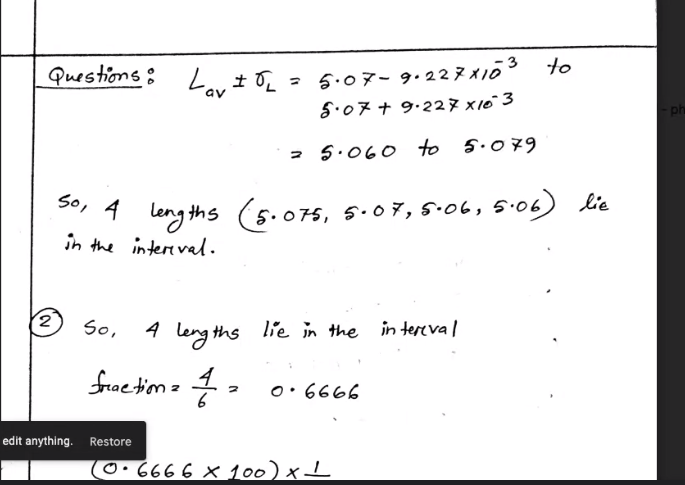 Questions: Lav ± σL = 5.07 - 9.227 x10⁻³ to
5.07 + 9.227 x10⁻³
= 5.060 to 5.079
So, 4 lengths (5.075, 5.07, 5.06, 5.06) lie
in the interval.
② So, 4 lengths lie in the interval
fraction = 4/6 = 0.6666
edit anything. Restore
(0.6666 x 100) x 1